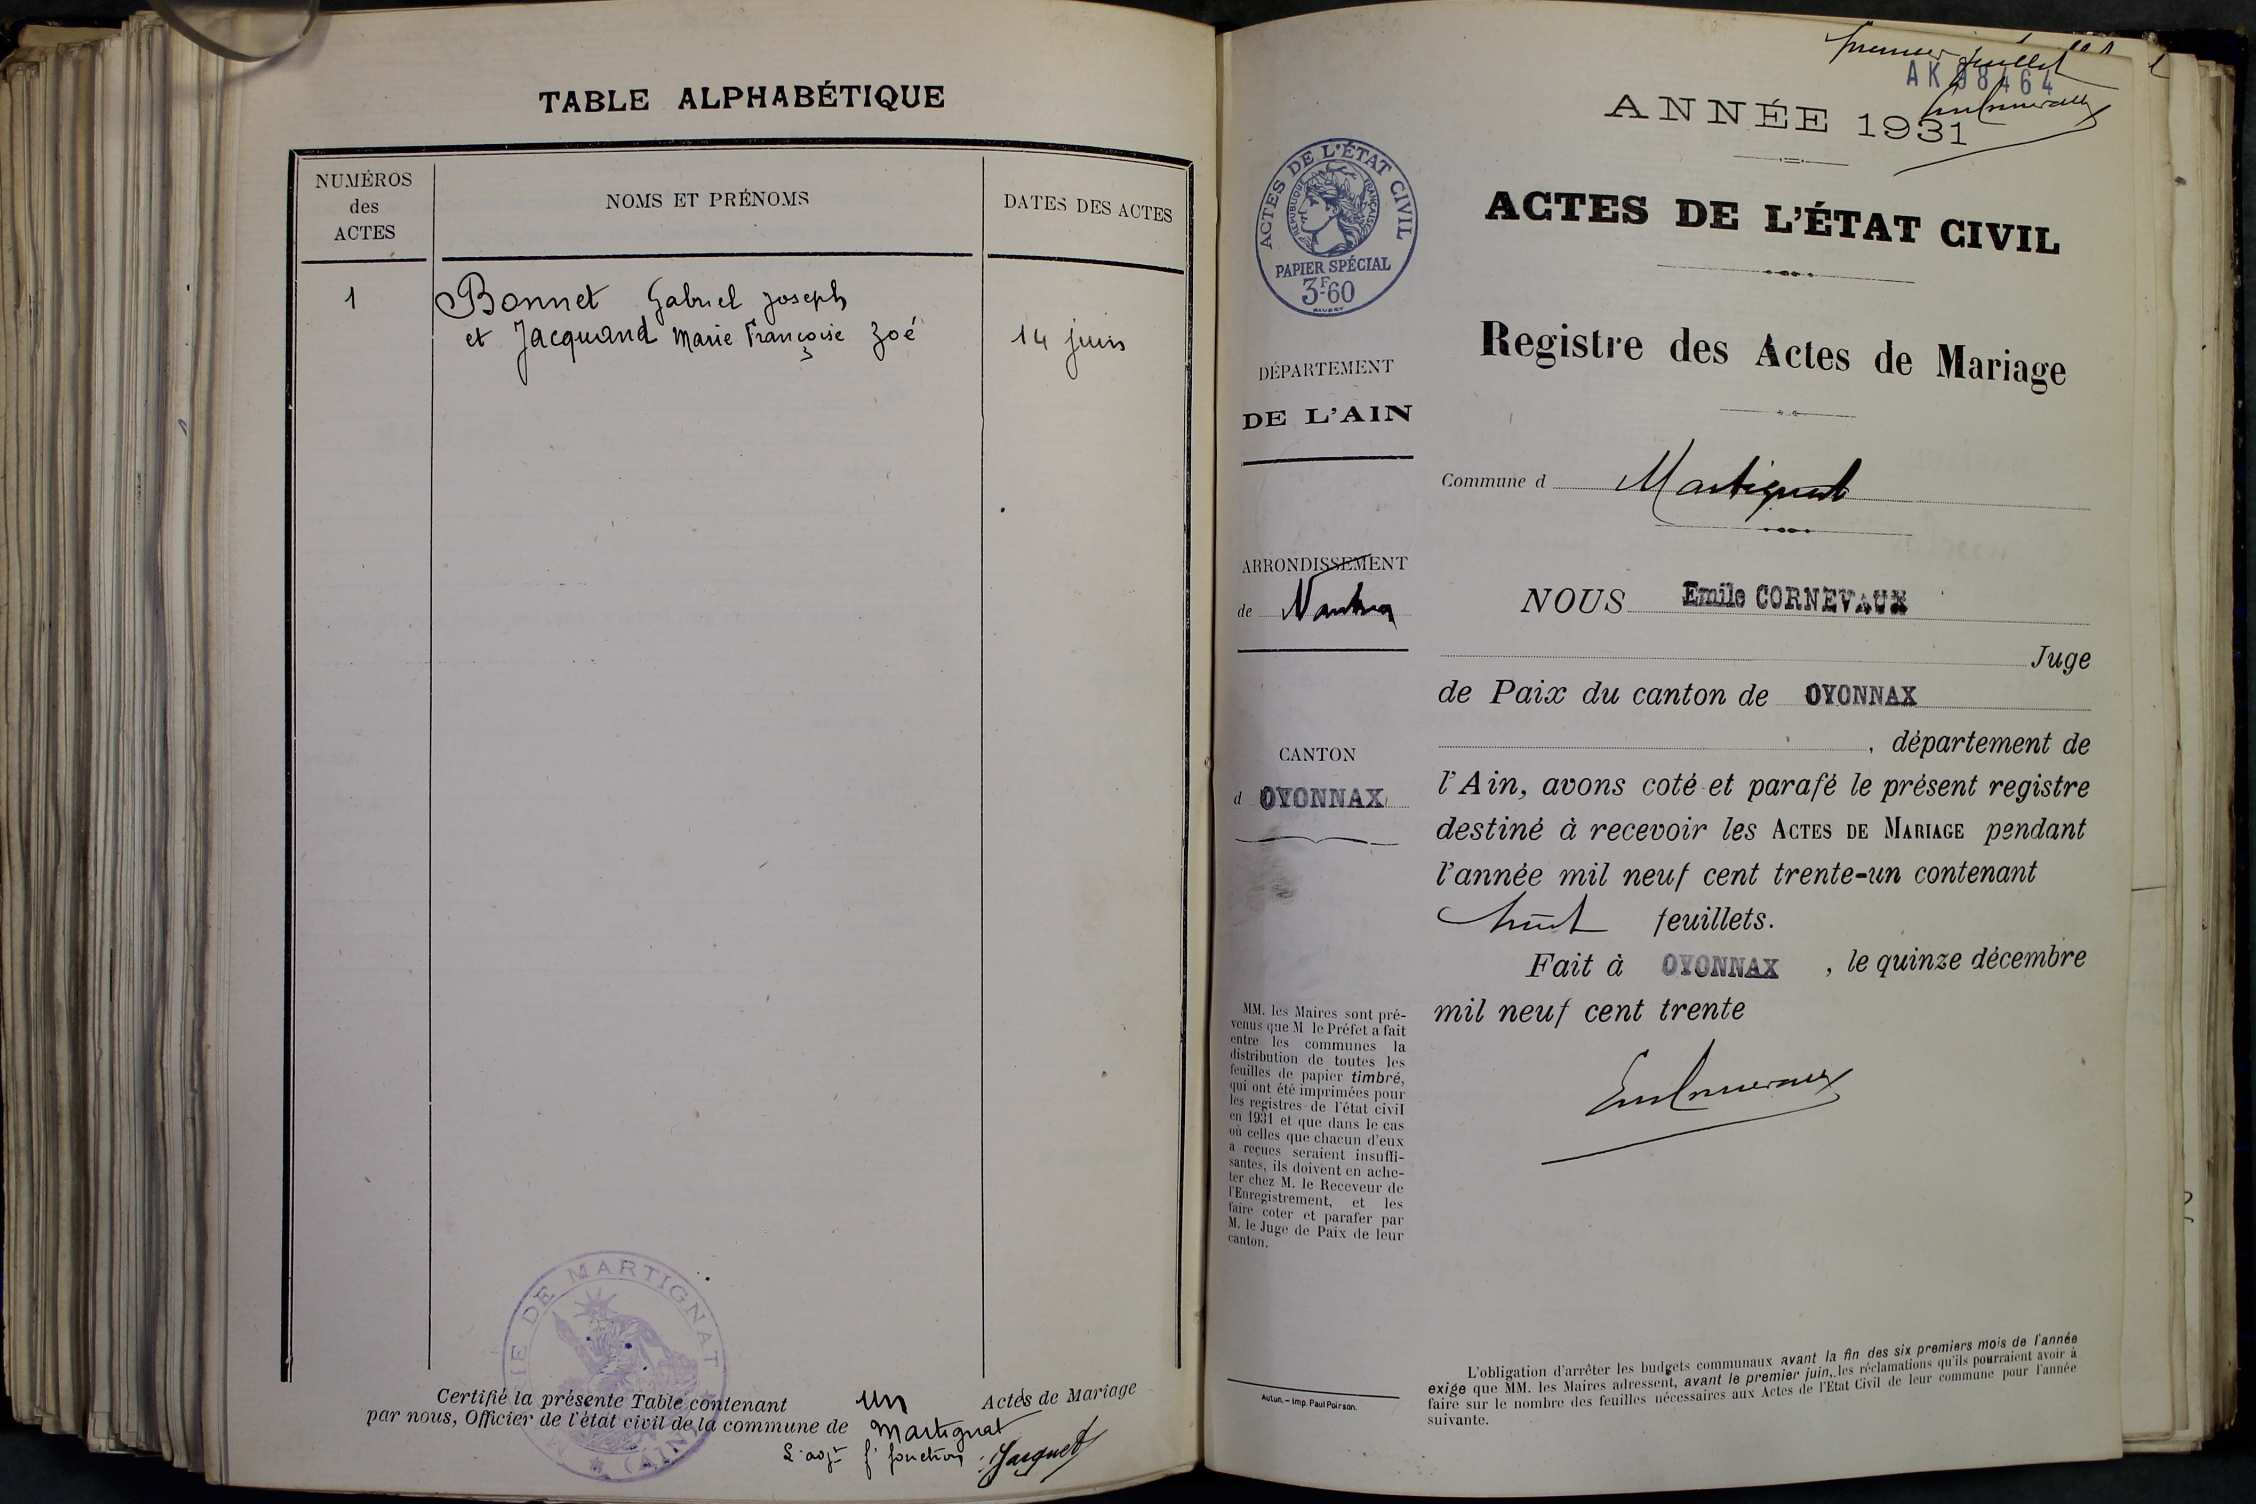 TABLE ALPHABÉTIQUE
NUMÉROS
des
ACTES
NOMS ET PRÉNOMS
DATES DES ACTES
1
Bonnet Gabriel Joseph
et Jacquand Marie Françoise Zoé
14 juin
MAIRIE DE MARTIGNAT
(AIN)
Certifié la présente Table contenant un Actes de Mariage
par nous, Officier de l'état civil de la commune de Martignat
L'adjt f. fonction Jacquet
premier feuillet
AK 98464
ANNÉE 1931
ACTES DE L'ÉTAT CIVIL
RÉPUBLIQUE FRANÇAISE
PAPIER SPÉCIAL
3F.60
ACTES DE L'ÉTAT CIVIL
Registre des Actes de Mariage
DÉPARTEMENT
DE L'AIN
Commune d Martignat
ARRONDISSEMENT
de Nantua
CANTON
d OYONNAX
NOUS Emile CORNEVAUX
Juge
de Paix du canton de OYONNAX
, département de
l'Ain, avons coté et parafé le présent registre
destiné à recevoir les ACTES DE MARIAGE pendant
l'année mil neuf cent trente-un contenant
huit feuillets.
Fait à OYONNAX , le quinze décembre
mil neuf cent trente
MM. les Maires sont pré-
venus que M le Préfet a fait
entre les communes la
distribution de toutes les
feuilles de papier timbré,
qui ont été imprimées pour
les registres de l'état civil
en 1931 et que dans le cas
où celles que chacun d'eux
a reçues seraient insuffi-
santes, ils doivent en ache-
ter chez M. le Receveur de
l'Enregistrement, et les
faire coter et parafer par
M. le Juge de Paix de leur
canton.
Autun. — Imp. Paul Poirson.
L'obligation d'arrêter les budgets communaux avant la fin des six premiers mois de l'année
exige que MM. les Maires adressent, avant le premier juin, les réclamations qu'ils pourraient avoir à
faire sur le nombre des feuilles nécessaires aux Actes de l'Etat Civil de leur commune pour l'année
suivante.